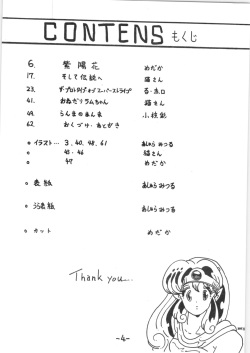 CONTENS もくじ
6. 紫陽花 めだか
17. そして伝説へ 猫さん
23. ザ・プロトタイプ・オブ・スーパーストライプ
41. おねだりラムちゃん 猫さん
49. らんまのまんま 小枝彰
62. おくづけ・あとがき
○イラスト… 3, 40, 48, 61 あしゅらみつる
○ 45・46 猫さん
○ 47 めだか
○表紙 あしゅらみつる
○うら表紙 あしゅらみつる
○カット めだか
Thank you...
-4-